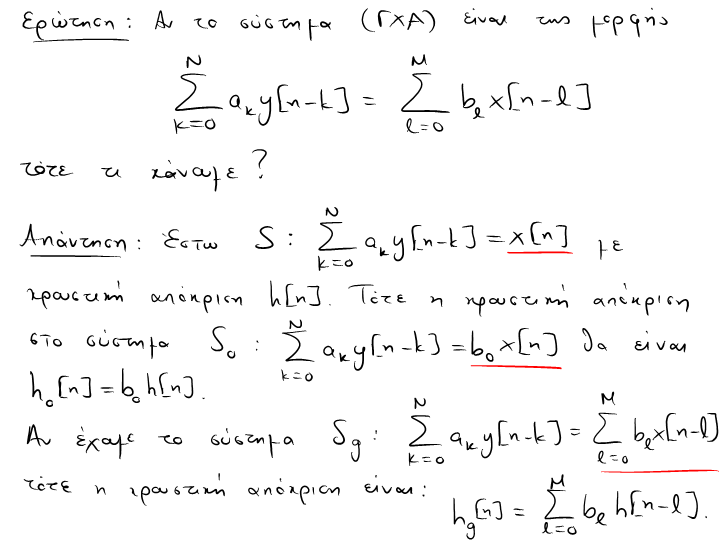 Ερώτηση: Αν το σύστημα (ΓΧΑ) είναι της μορφής
\sum_{k=0}^{N} a_k y[n-k] = \sum_{l=0}^{M} b_l x[n-l]
τότε τι κάναμε?
Απάντηση: Έστω S: \sum_{k=0}^{N} a_k y[n-k] = x[n] με
κρουστική απόκριση h[n]. Τότε η κρουστική απόκριση
στο σύστημα S_0: \sum_{k=0}^{N} a_k y[n-k] = b_0 x[n] θα είναι
h_0[n] = b_0 h[n].
Αν έχουμε το σύστημα S_g: \sum_{k=0}^{N} a_k y[n-k] = \sum_{l=0}^{M} b_l x[n-l]
τότε η κρουστική απόκριση είναι: h_g[n] = \sum_{l=0}^{M} b_l h[n-l].